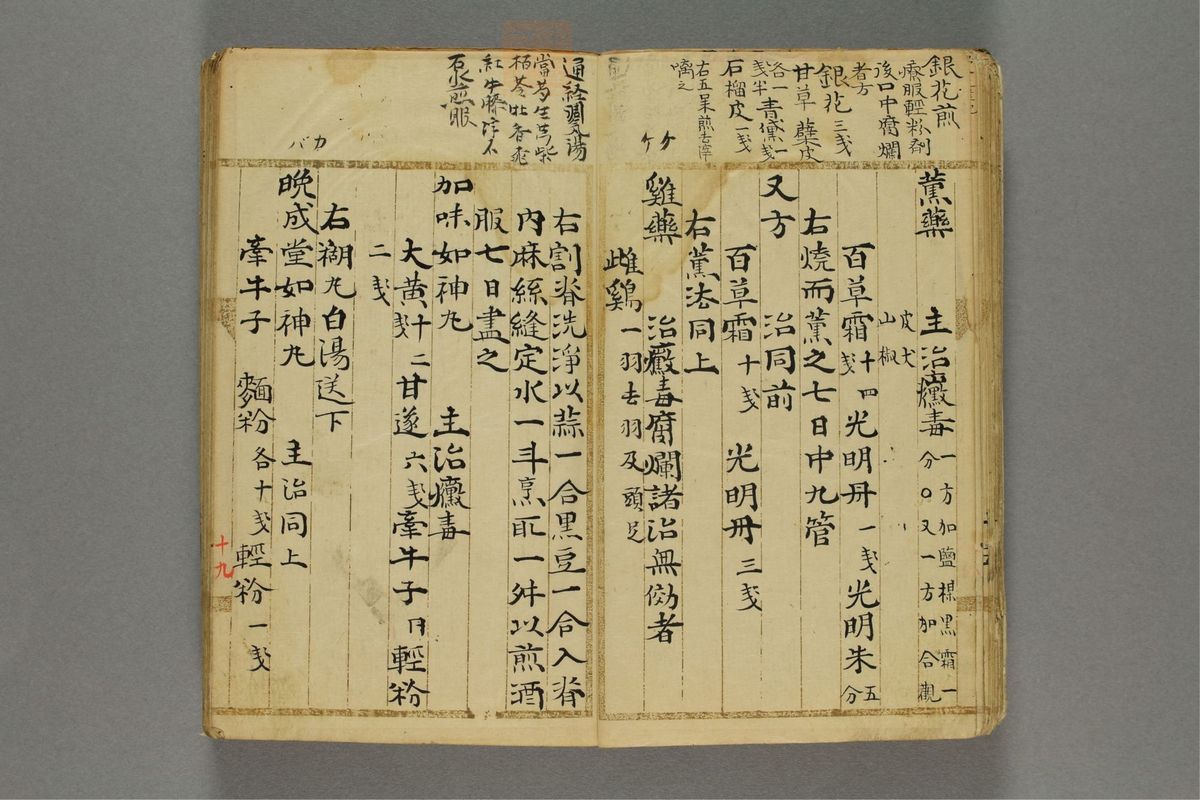 銀花煎
療服輕粉剤
後口中腐爛
者方
銀花三戔
甘草 蘗皮
各一青黛一戔
戔半
石榴皮一戔
右五呆煎去滓
噙之
ケケ
薫藥 主治黴毒一方加鹽梅黒霜一
分〇又一方加合觀
皮犬
山椒
百草霜十四戔光明丹一戔光明朱五分
右燒而薫之七日中九管
又方 治同前
百草霜十戔 光明丹三戔
右薫法同上
雞藥 治黴毒腐爛諸治無効者
雌鷄一羽去羽及頭足
通経調氣湯
石水煎服
カバ
右割脊洗淨以蒜一合黒豆一合入脊
内麻絲縫定水一斗烹取一舛以煎酒
服七日盡之
加味如神丸 主治黴毒
大黄十二戔甘遂六戔牽牛子円輕粉
二戔
右糊丸白湯送下
晩成堂如神丸 主治同上
牽牛子 麵粉各十戔輕粉一戔
十九